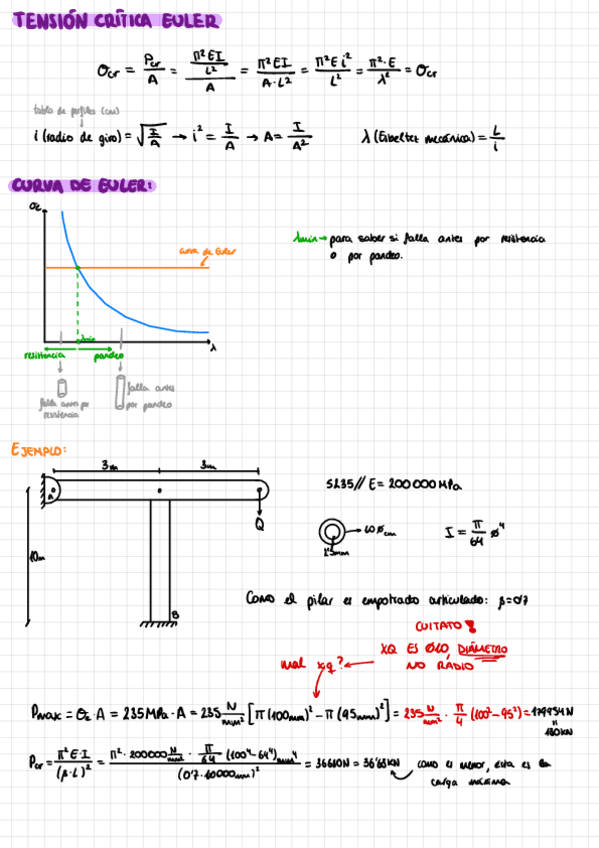 TENSIÓN CRÍTICA EULER
σcr = Pcr/A = (π²EI/L²)/A = π²EI/(A·L²) = π²E i²/L² = π²·E/λ² = σcr
tabla de perfiles (cm)
i (radio de giro) = √(I/A) → i² = I/A → A = I/A²
λ (Esbeltez mecánica) = L/i
CURVA DE EULER:
σc
λmin → para saber si falla antes por resistencia
o por pandeo.
curva de Euler
λmin
λ
resistencia
pandeo
falla antes por
resistencia
falla antes
por pandeo
EJEMPLO:
3m
3m
A
Q
10m
B
S235 // E = 200000 MPa
I = π/64 ø⁴
Como el pilar es empotrado articulado: β=0'7
CUITATO!
XQ ES ØLO, DIÁMETRO
NO RADIO
mal xq?
Pmax = σc·A = 235 MPa·A = 235 N/mm² [π(100mm)² − π(95mm)²] = 235 N/mm² · π/4 (100² − 95²) = 179954N
=
180KN
Pcr = π²·E·I/(β·L)² = π²·200000 N/mm² · π/64 (100⁴ − 64⁴)mm⁴/(0'7·10000mm)² = 36610N = 36'61KN
como es menor, esta es la
carga máxima